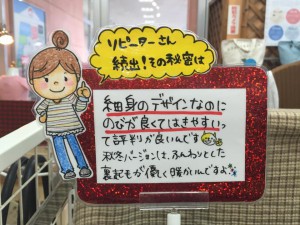 リピーターさん
続出!その秘密は
細身のデザインなのに
のびが良くてはきやすいっ
て評判が良いんです
秋冬バージョンは、ふんわりとした
裏起毛が優しく暖かいんですよ